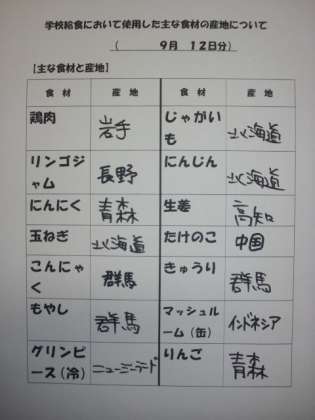 学校給食において使用した主な食材の産地について
( 9月 12日分)
[主な食材と産地]
食材 産地 食材 産地
鶏肉 岩手 じゃがいも 北海道
リンゴジャム 長野 にんじん 北海道
にんにく 青森 生姜 高知
玉ねぎ 北海道 たけのこ 中国
こんにゃく 群馬 きゅうり 群馬
もやし 群馬 マッシュルーム(缶) インドネシア
グリンピース(冷) ニュージーランド りんご 青森